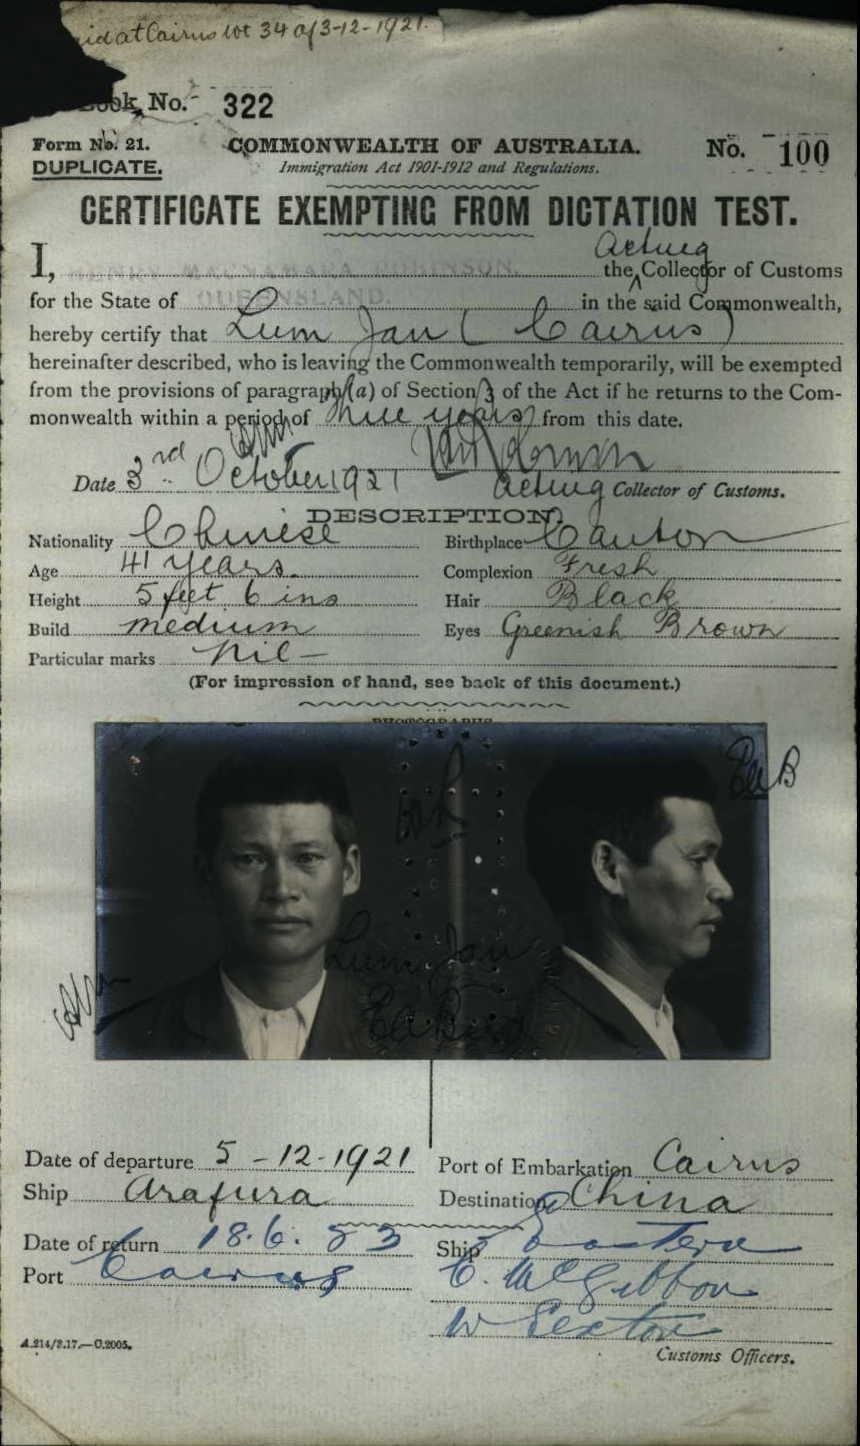 at Cairns lot 34 of 3-12-1921.
Book No. 322
Form No. 21. COMMONWEALTH OF AUSTRALIA. No. 100
DUPLICATE. Immigration Act 1901-1912 and Regulations.
CERTIFICATE EXEMPTING FROM DICTATION TEST.
Acting
I, HENRY the Collector of Customs
for the State of QUEENSLAND. in the said Commonwealth,
hereby certify that Lum Jan (Cairns)
hereinafter described, who is leaving the Commonwealth temporarily, will be exempted
from the provisions of paragraph (a) of Section 3 of the Act if he returns to the Com-
monwealth within a period of three years from this date.
Date 3rd October 1921 Acting Collector of Customs.
DESCRIPTION.
Nationality Chinese Birthplace Canton
Age 41 years. Complexion Fresh
Height 5 feet 6 ins Hair Black
Build medium Eyes Greenish Brown
Particular marks nil-
(For impression of hand, see back of this document.)
PHOTOGRAPHS
Lum Jan
Date of departure 5-12-1921 Port of Embarkation Cairns
Ship Arafura Destination China
Date of return 18.6.23 Ship Eastern
Port Cairns C. McGibbon
W Sexton
A.214/2.17.—C.2005. Customs Officers.